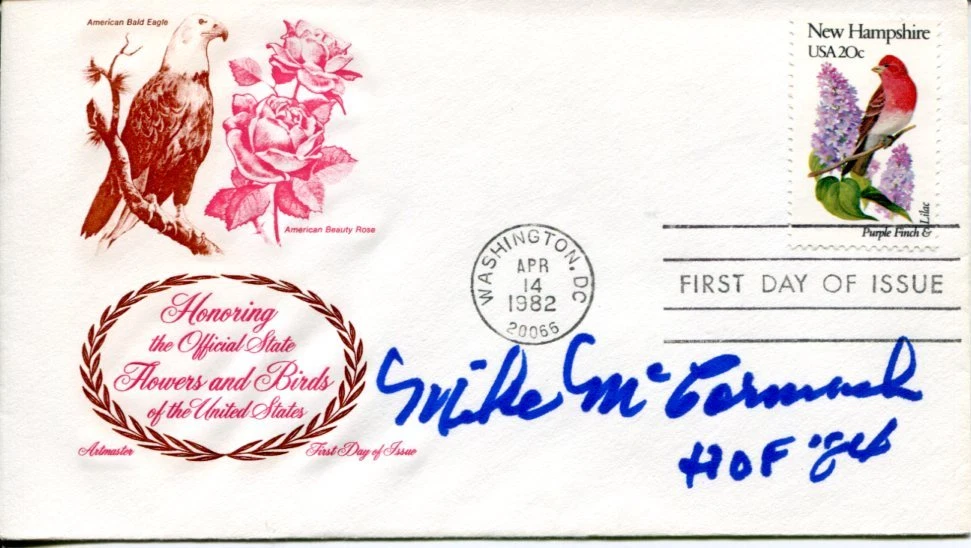 American Bald Eagle
American Beauty Rose
New Hampshire
USA 20c
Lilac
Purple Finch &
WASHINGTON, DC
APR
14
1982
20066
FIRST DAY OF ISSUE
Honoring
the Official State
Flowers and Birds
of the United States
Artmaster
First Day of Issue
Mike McCormack
HOF '84